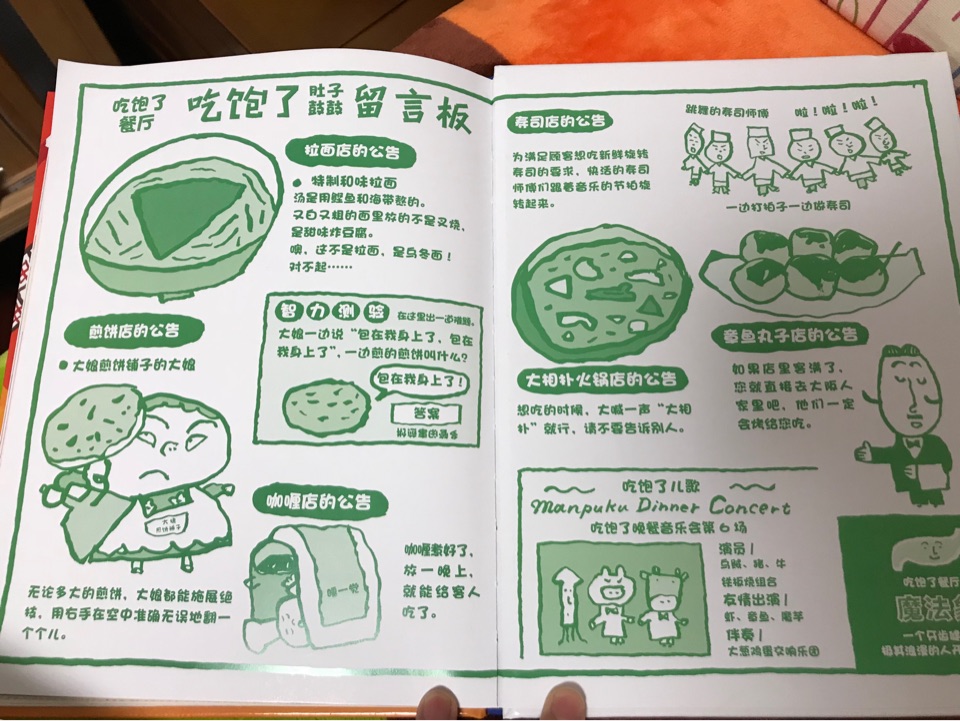 吃饱了
餐厅
吃饱了
肚子
鼓鼓
留言板
拉面店的公告
● 特制和味拉面
汤是用鲣鱼和海带熬的。
又白又粗的面里放的不是叉烧，
是甜味炸豆腐。
噢，这不是拉面，是乌冬面！
对不起……
智力测验
在这里出一道难题。
大娘一边说“包在我身上了，包在
我身上了”，一边煎的煎饼叫什么？
包在我身上了！
答案
煎饼店的公告
● 大娘煎饼铺子的大娘
大娘
煎饼铺子
无论多大的煎饼，大娘都能施展绝
技，用右手在空中准确无误地翻一
个个儿。
咖喱店的公告
睡一觉
咖喱煮好了，
放一晚上，
就能给客人
吃了。
寿司店的公告
为满足顾客想吃新鲜旋转
寿司的要求，快活的寿司
师傅们跳着音乐的节拍旋
转起来。
跳舞的寿司师傅
啦！啦！啦！
一边打拍子一边做寿司
大相扑火锅店的公告
想吃的时候，大喊一声“大相
扑”就行，请不要告诉别人。
章鱼丸子店的公告
如果店里客满了，
您就直接去大阪人
家里吧，他们一定
会烤给您吃。
吃饱了儿歌
Manpuku Dinner Concert
吃饱了晚餐音乐会第6场
演员！
乌贼、猪、牛
铁板烧组合
友情出演！
虾、章鱼、魔芋
伴奏！
大葱鸡蛋交响乐团
吃饱了餐厅
魔法
一个牙齿